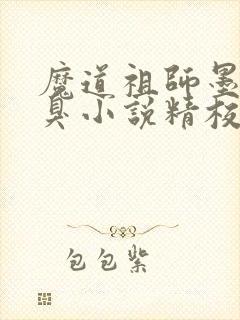 魔道祖師墨
臭小説精校
包包紫